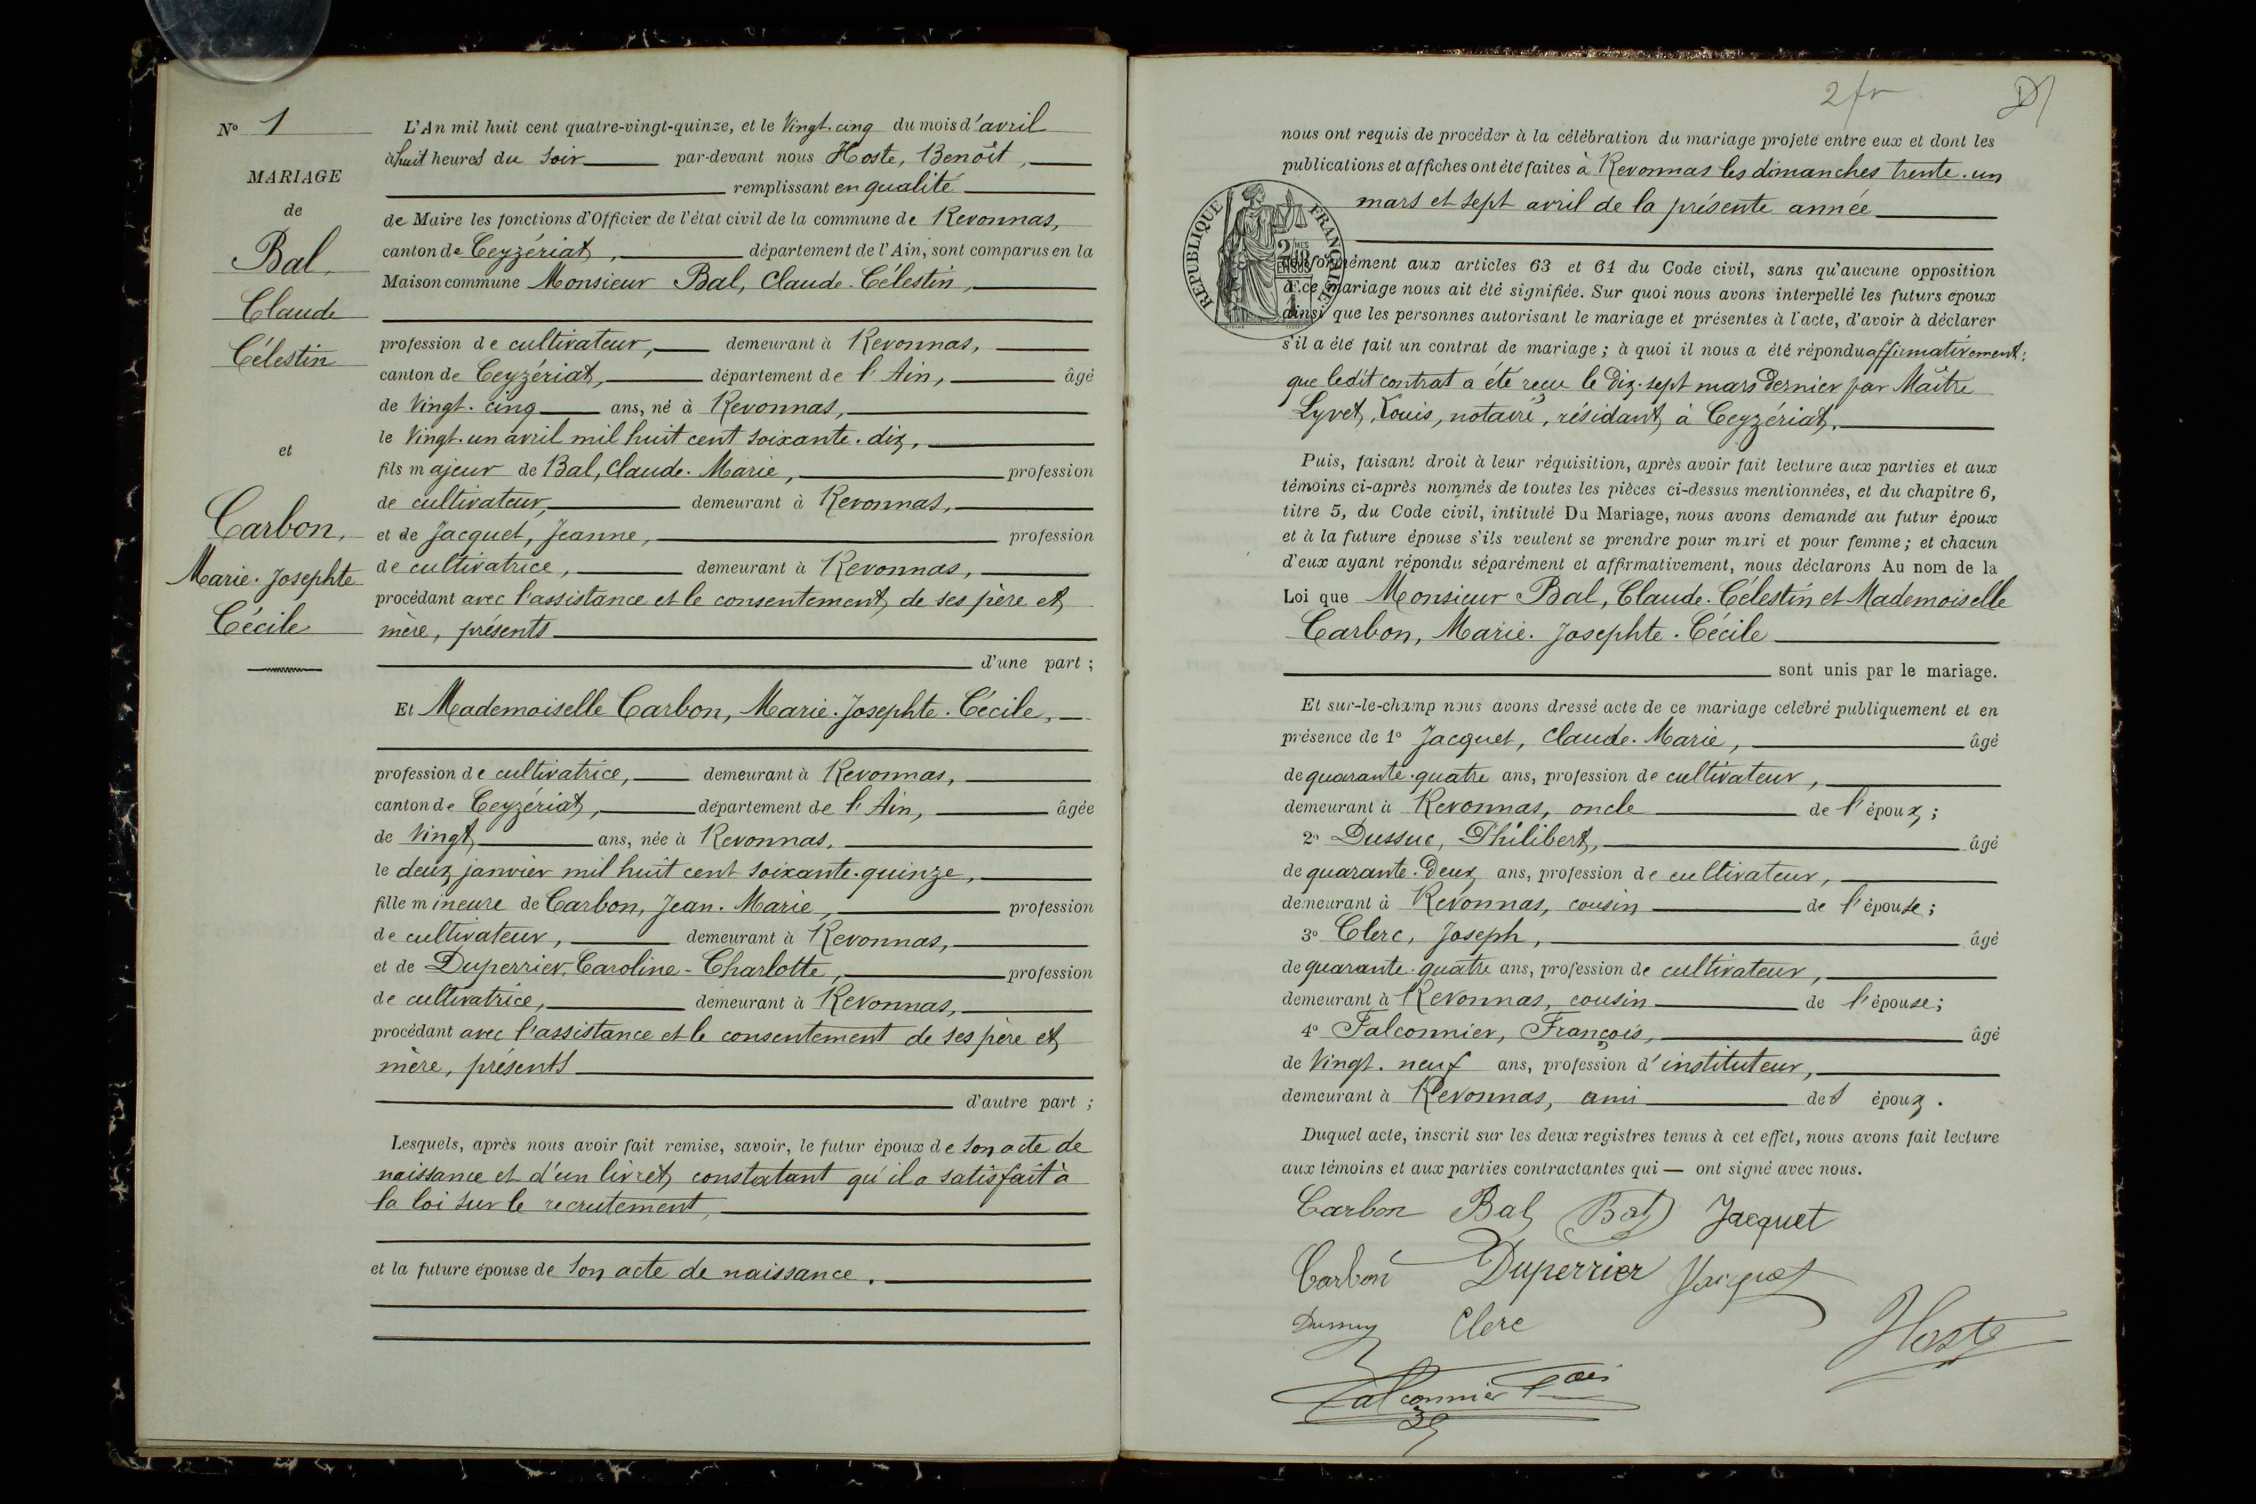 N° 1
MARIAGE
de
Bal,
Claude
Célestin
et
Carbon,
Marie-Josephte
Cécile
L'An mil huit cent quatre-vingt-quinze, et le Vingt-cinq du mois d'avril
à huit heures du soir par-devant nous Hoste, Benoît,
remplissant en qualité
de Maire les fonctions d'Officier de l'état civil de la commune de Revonnas,
canton de Ceyzériat, département de l'Ain, sont comparus en la
Maison commune Monsieur Bal, Claude-Célestin,
profession de cultivateur, demeurant à Revonnas,
canton de Ceyzériat, département de l'Ain, âgé
de Vingt-cinq ans, né à Revonnas,
le Vingt-un avril mil huit cent soixante-dix,
fils majeur de Bal, Claude-Marie, profession
de cultivateur, demeurant à Revonnas,
et de Jacquet, Jeanne, profession
de cultivatrice, demeurant à Revonnas,
procédant avec l'assistance et le consentement de ses père et
mère, présents
d'une part ;
Et Mademoiselle Carbon, Marie-Josephte-Cécile,
profession de cultivatrice, demeurant à Revonnas,
canton de Ceyzériat, département de l'Ain, âgée
de Vingt ans, née à Revonnas,
le deux janvier mil huit cent soixante-quinze,
fille mineure de Carbon, Jean-Marie, profession
de cultivateur, demeurant à Revonnas,
et de Duperrier, Caroline-Charlotte, profession
de cultivatrice, demeurant à Revonnas,
procédant avec l'assistance et le consentement de ses père et
mère, présents
d'autre part ;
Lesquels, après nous avoir fait remise, savoir, le futur époux de son acte de
naissance et d'un livret constatant qu'il a satisfait à
la loi sur le recrutement,
et la future épouse de son acte de naissance.
2 fr
nous ont requis de procéder à la célébration du mariage projeté entre eux et dont les
publications et affiches ont été faites à Revonnas les dimanches trente-un
mars et sept avril de la présente année
RÉPUBLIQUE FRANÇAISE
conformément aux articles 63 et 64 du Code civil, sans qu'aucune opposition
à ce mariage nous ait été signifiée. Sur quoi nous avons interpellé les futurs époux
ainsi que les personnes autorisant le mariage et présentes à l'acte, d'avoir à déclarer
s'il a été fait un contrat de mariage ; à quoi il nous a été répondu affirmativement :
que ledit contrat a été reçu le dix-sept mars dernier par Maître
Lyvet, Louis, notaire, résidant à Ceyzériat.
Puis, faisant droit à leur réquisition, après avoir fait lecture aux parties et aux
témoins ci-après nommés de toutes les pièces ci-dessus mentionnées, et du chapitre 6,
titre 5, du Code civil, intitulé Du Mariage, nous avons demandé au futur époux
et à la future épouse s'ils veulent se prendre pour mari et pour femme ; et chacun
d'eux ayant répondu séparément et affirmativement, nous déclarons Au nom de la
Loi que Monsieur Bal, Claude-Célestin et Mademoiselle
Carbon, Marie-Josephte-Cécile
sont unis par le mariage.
Et sur-le-champ nous avons dressé acte de ce mariage célébré publiquement et en
présence de 1° Jacquet, Claude-Marie, âgé
de quarante-quatre ans, profession de cultivateur,
demeurant à Revonnas, oncle de l'époux ;
2° Dussuc, Philibert, âgé
de quarante-deux ans, profession de cultivateur,
demeurant à Revonnas, cousin de l'épouse ;
3° Clerc, Joseph, âgé
de quarante-quatre ans, profession de cultivateur,
demeurant à Revonnas, cousin de l'épouse ;
4° Falconnier, François, âgé
de Vingt-neuf ans, profession d'instituteur,
demeurant à Revonnas, ami des époux.
Duquel acte, inscrit sur les deux registres tenus à cet effet, nous avons fait lecture
aux témoins et aux parties contractantes qui — ont signé avec nous.
Carbon Bal Bal Jacquet
Carbon Duperrier Jacquet
Clerc Hoste
Falconnier Fçois